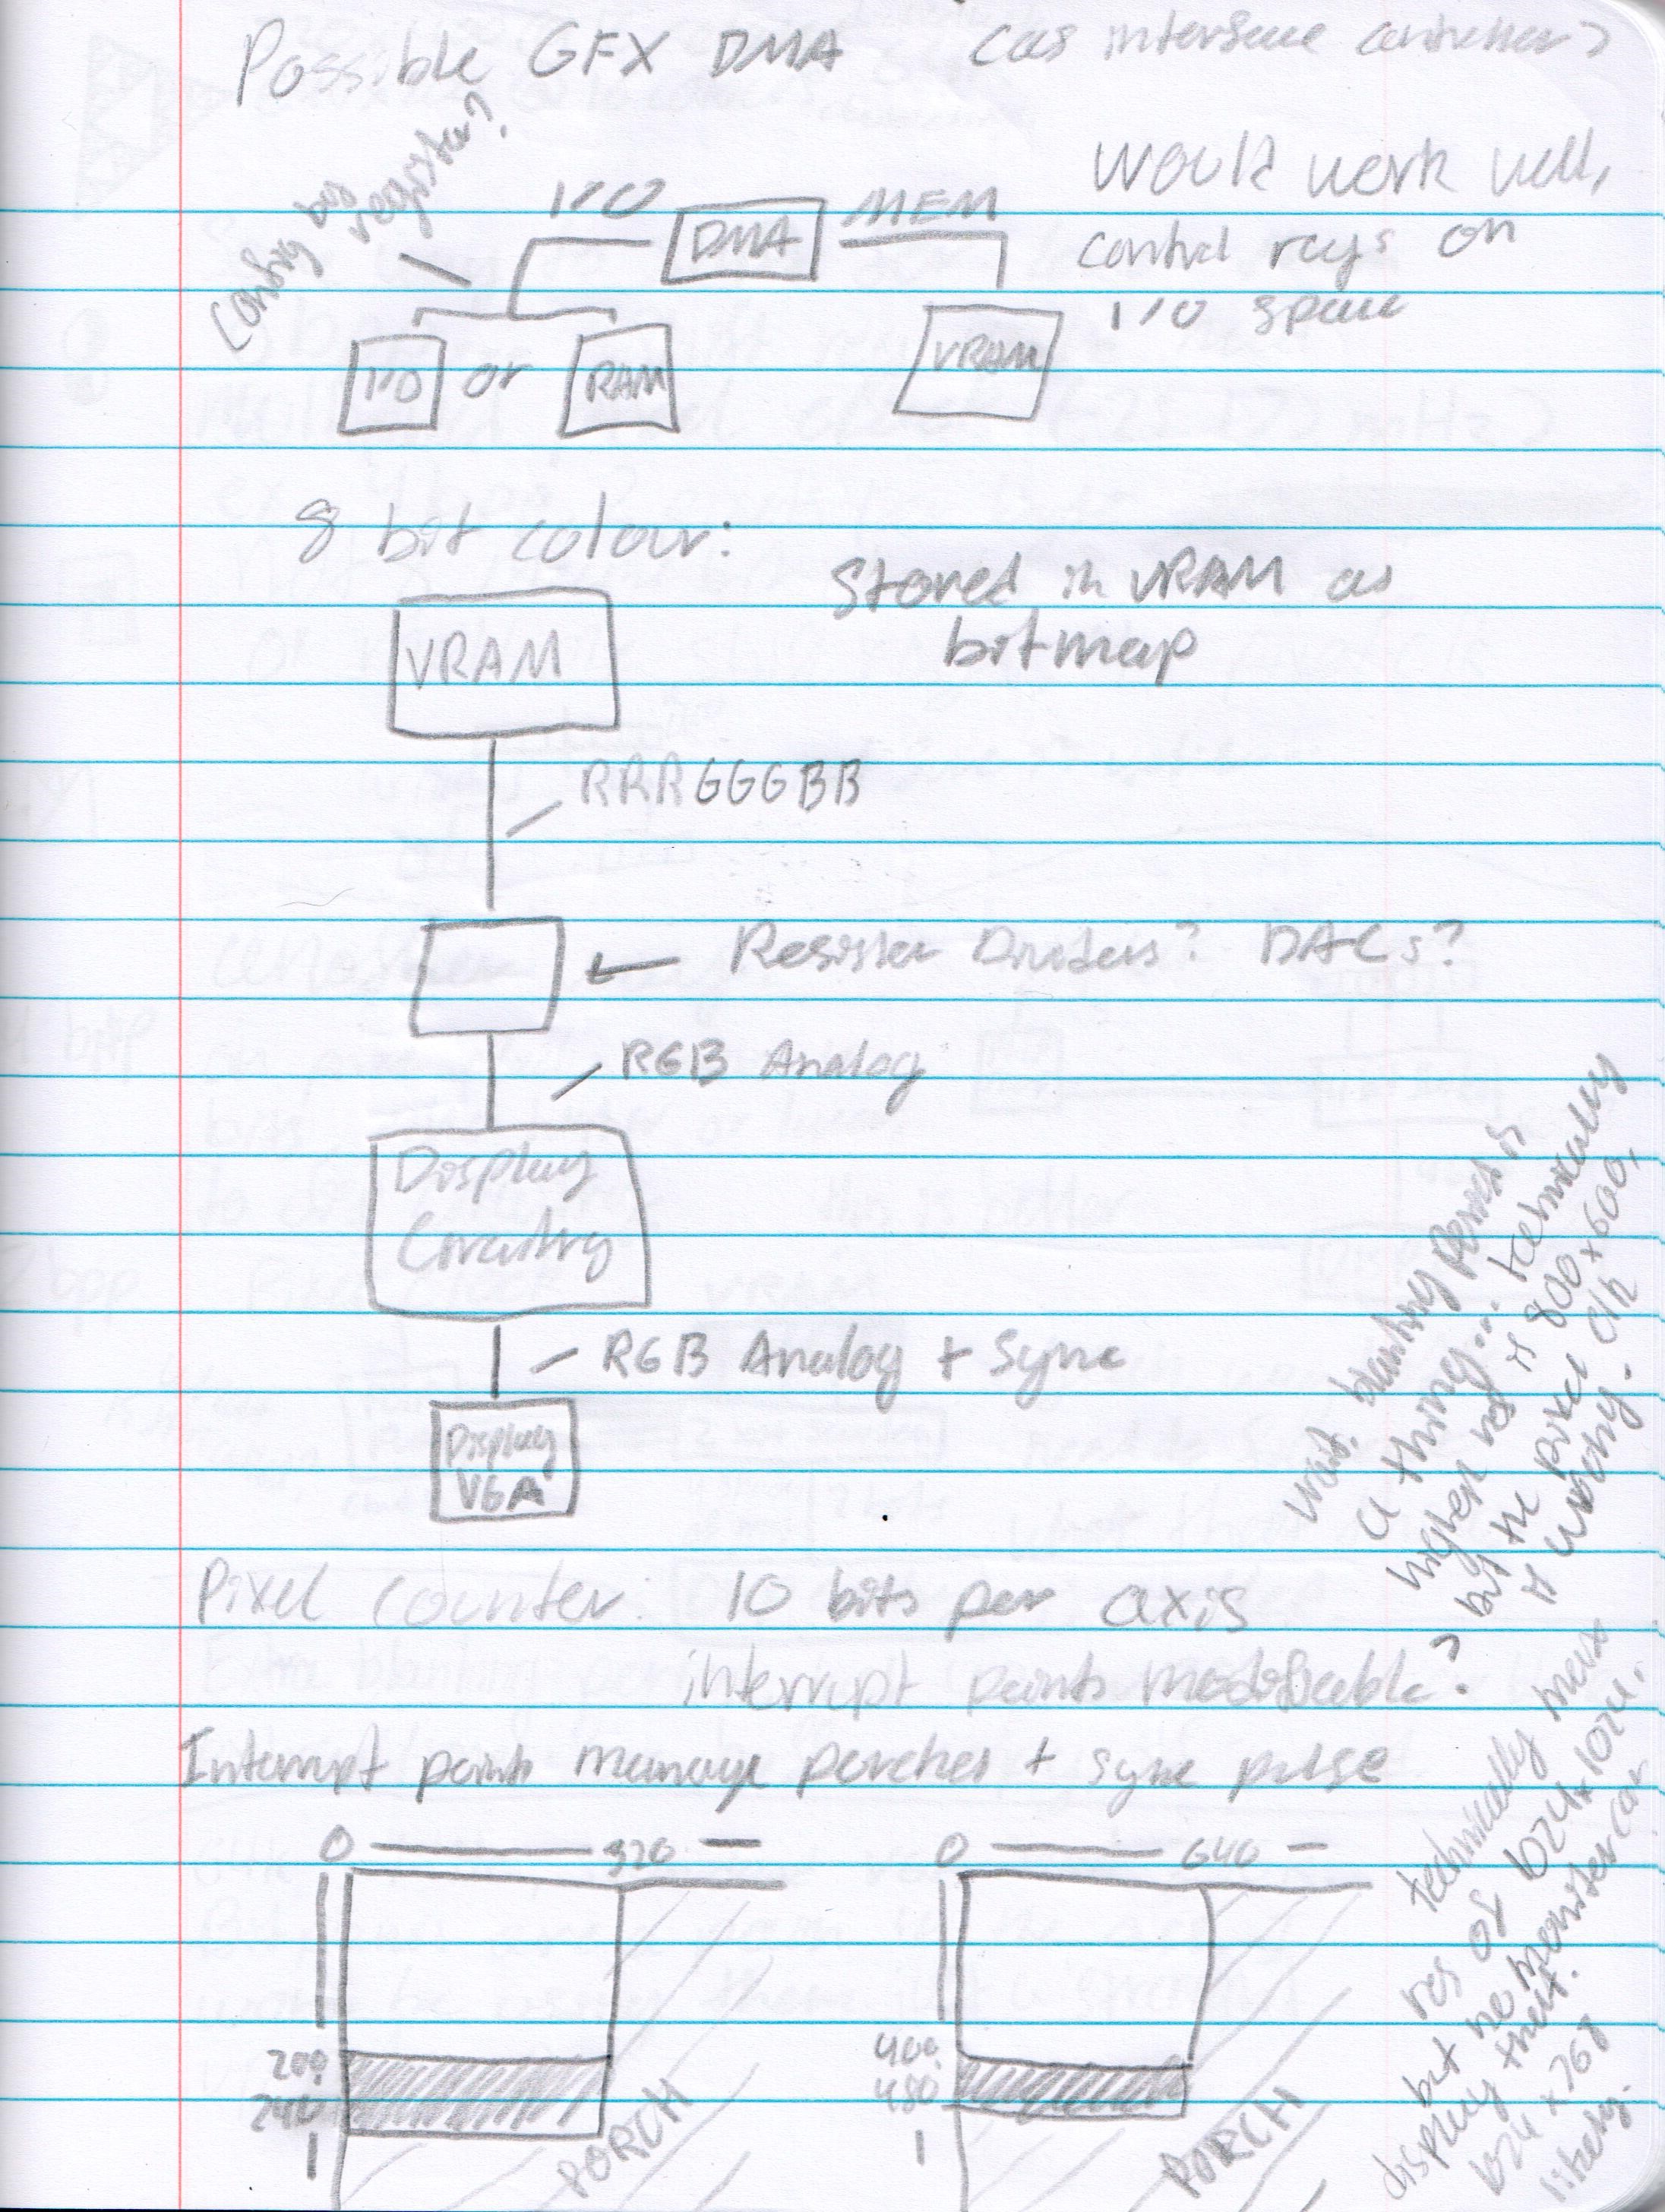 Possible GFX DMA (as interface controller?)
Config bus
register?
I/O
DMA
MEM
I/O or RAM
VRAM
Would work well,
control regs on
I/O space
8 bit colour:
VRAM
Stored in VRAM as
bitmap
RRRGGGBB
Resister Dividers? DACs?
RGB Analog
Display
Circuitry
RGB Analog + Sync
Display
VGA
wait, blanking period is
a thing... technically
higher res is 800x600,
but the pixel clk
is wrong.
Pixel counter: 10 bits per axis
interrupt points modifiable?
Interrupt points manage porches + sync pulse
0 320
200
240
PORCH
0 640
400
480
PORCH
technically max
res of 1024x1024,
but no monitor can
display that.
1024 x 768
likely.